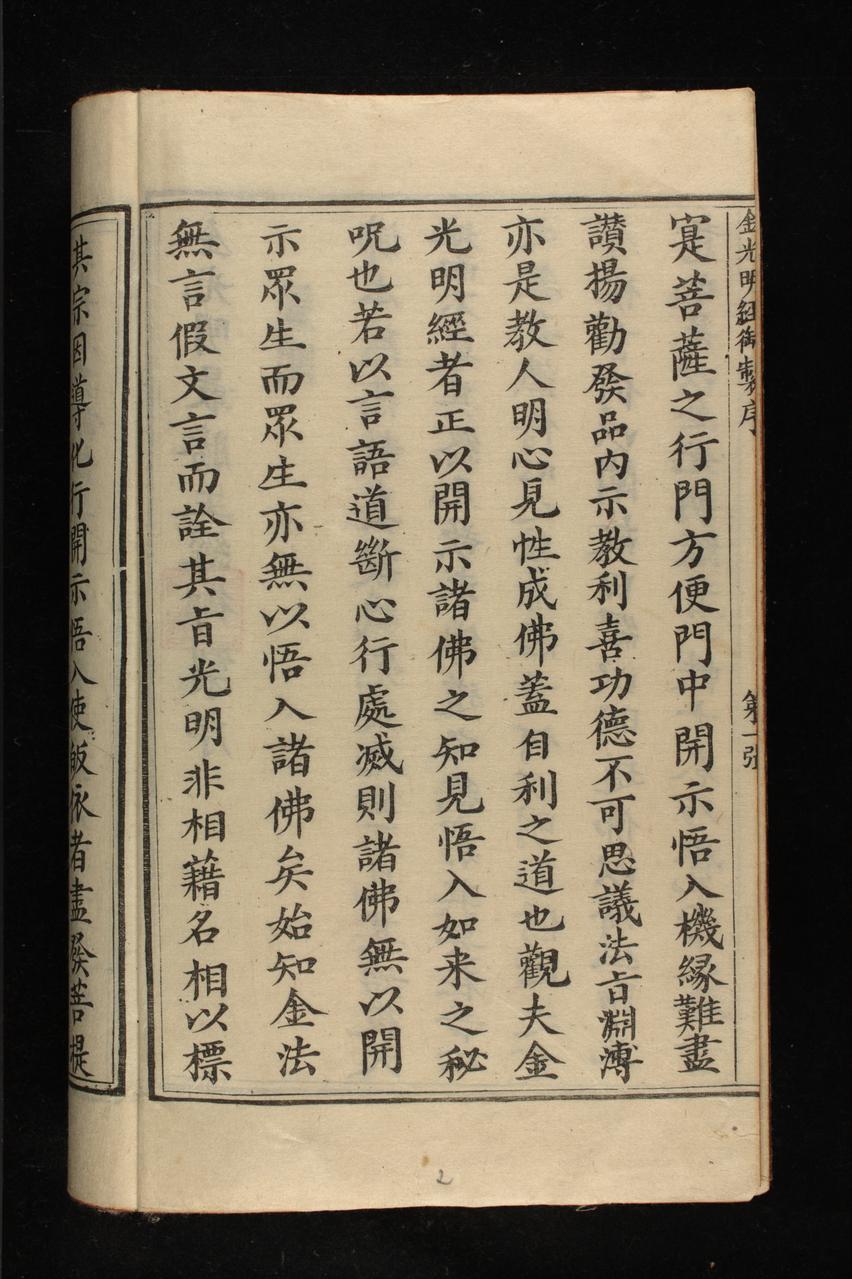 金光明經御製序
第一張
寔菩薩之行門方便門中開示悟入機縁難盡
讚揚勸發品內示教利喜功德不可思議法㫖淵溥
亦是教人明心見性成佛蓋自利之道也觀夫金
光明經者正以開示諸佛之知見悟入如来之秘
呪也若以言語道斷心行處滅則諸佛無以開
示眾生而眾生亦無以悟入諸佛矣始知金法
無言假文言而詮其㫖光明非相藉名相以標
其宗因導化行開示悟入使皈依者盡發菩提